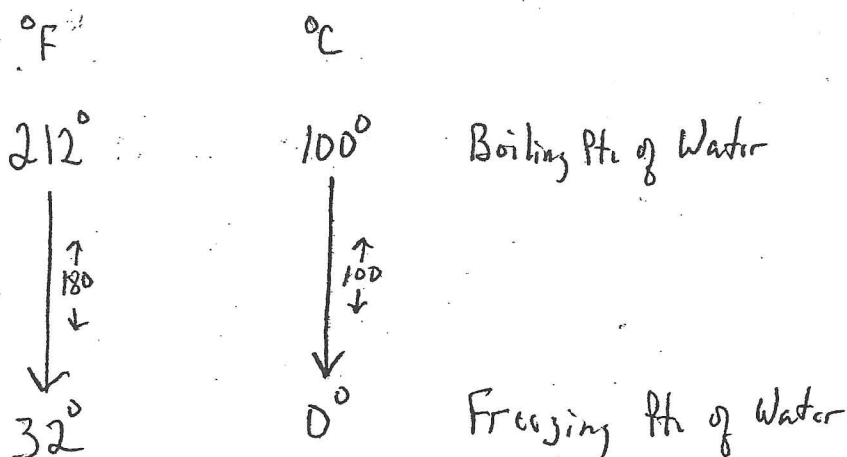 °F °C
212° 100° Boiling Pt. of Water
↑ ↑
180 100
↓ ↓
32° 0° Freezing Pt. of Water